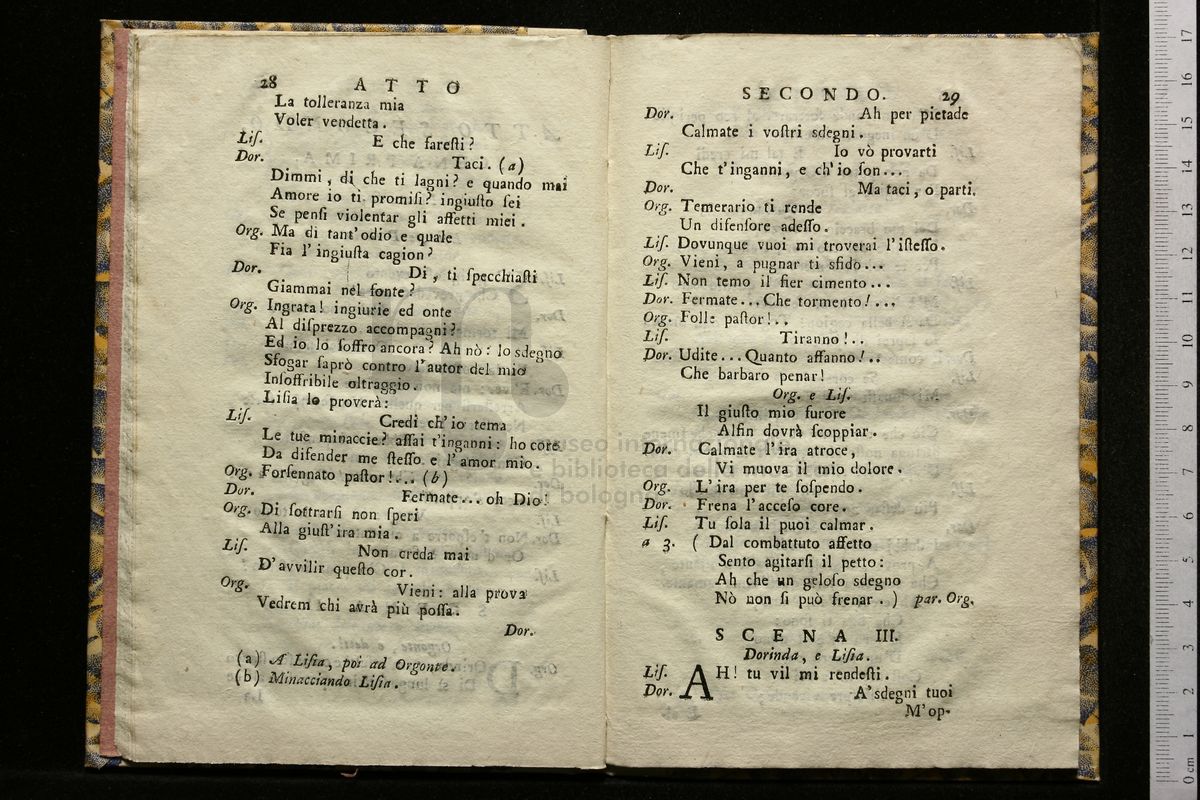 28 ATTO
La tolleranza mia
Voler vendetta.
Liſ. E che fareſti?
Dor. Taci. (a)
Dimmi, di che ti lagni? e quando mai
Amore io ti promiſi? ingiuſto ſei
Se penſi violentar gli affetti miei.
Org. Ma di tant'odio e quale
Fia l'ingiuſta cagion?
Dor. Di, ti ſpecchiaſti
Giammai nel fonte?
Org. Ingrata! ingiurie ed onte
Al diſprezzo accompagni?
Ed io lo ſoffro ancora? Ah nò: lo sdegno
Sfogar ſaprò contro l'autor del mio
Inſoffribile oltraggio.
Liſia lo proverà:
Liſ. Credi ch'io tema
Le tue minaccie? aſſai t'inganni: ho core
Da difender me ſteſſo e l'amor mio.
Org. Forſennato paſtor!... (b)
Dor. Fermate... oh Dio!
Org. Di ſottrarſi non ſperi
Alla giuſt'ira mia.
Liſ. Non creda mai
D'avvilir queſto cor.
Org. Vieni: alla prova
Vedrem chi avrà più poſſa.
Dor.
(a) A Liſia, poi ad Orgonte.
(b) Minacciando Liſia.
SECONDO. 29
Dor. Ah per pietade
Calmate i voſtri sdegni.
Liſ. Io vò provarti
Che t'inganni, e ch'io ſon...
Dor. Ma taci, o parti.
Org. Temerario ti rende
Un difenſore adeſſo.
Liſ. Dovunque vuoi mi troverai l'iſteſſo.
Org. Vieni, a pugnar ti sfido...
Liſ. Non temo il fier cimento...
Dor. Fermate... Che tormento!...
Org. Folle paſtor!..
Liſ. Tiranno!..
Dor. Udite... Quanto affanno!..
Che barbaro penar!
Org. e Liſ.
Il giuſto mio furore
Alfin dovrà ſcoppiar.
Dor. Calmate l'ira atroce,
Vi muova il mio dolore.
Org. L'ira per te ſoſpendo.
Dor. Frena l'acceſo core.
Liſ. Tu ſola il puoi calmar.
a 3. ( Dal combattuto affetto
Sento agitarſi il petto:
Ah che un geloſo sdegno
Nò non ſi può frenar. ) par. Org.
SCENA III.
Dorinda, e Liſia.
Liſ. AH! tu vil mi rendeſti.
Dor. A'sdegni tuoi
M'op-
museo internazionale
biblioteca della
bologna
0 cm 1 2 3 4 5 6 7 8 9 10 11 12 13 14 15 16 17